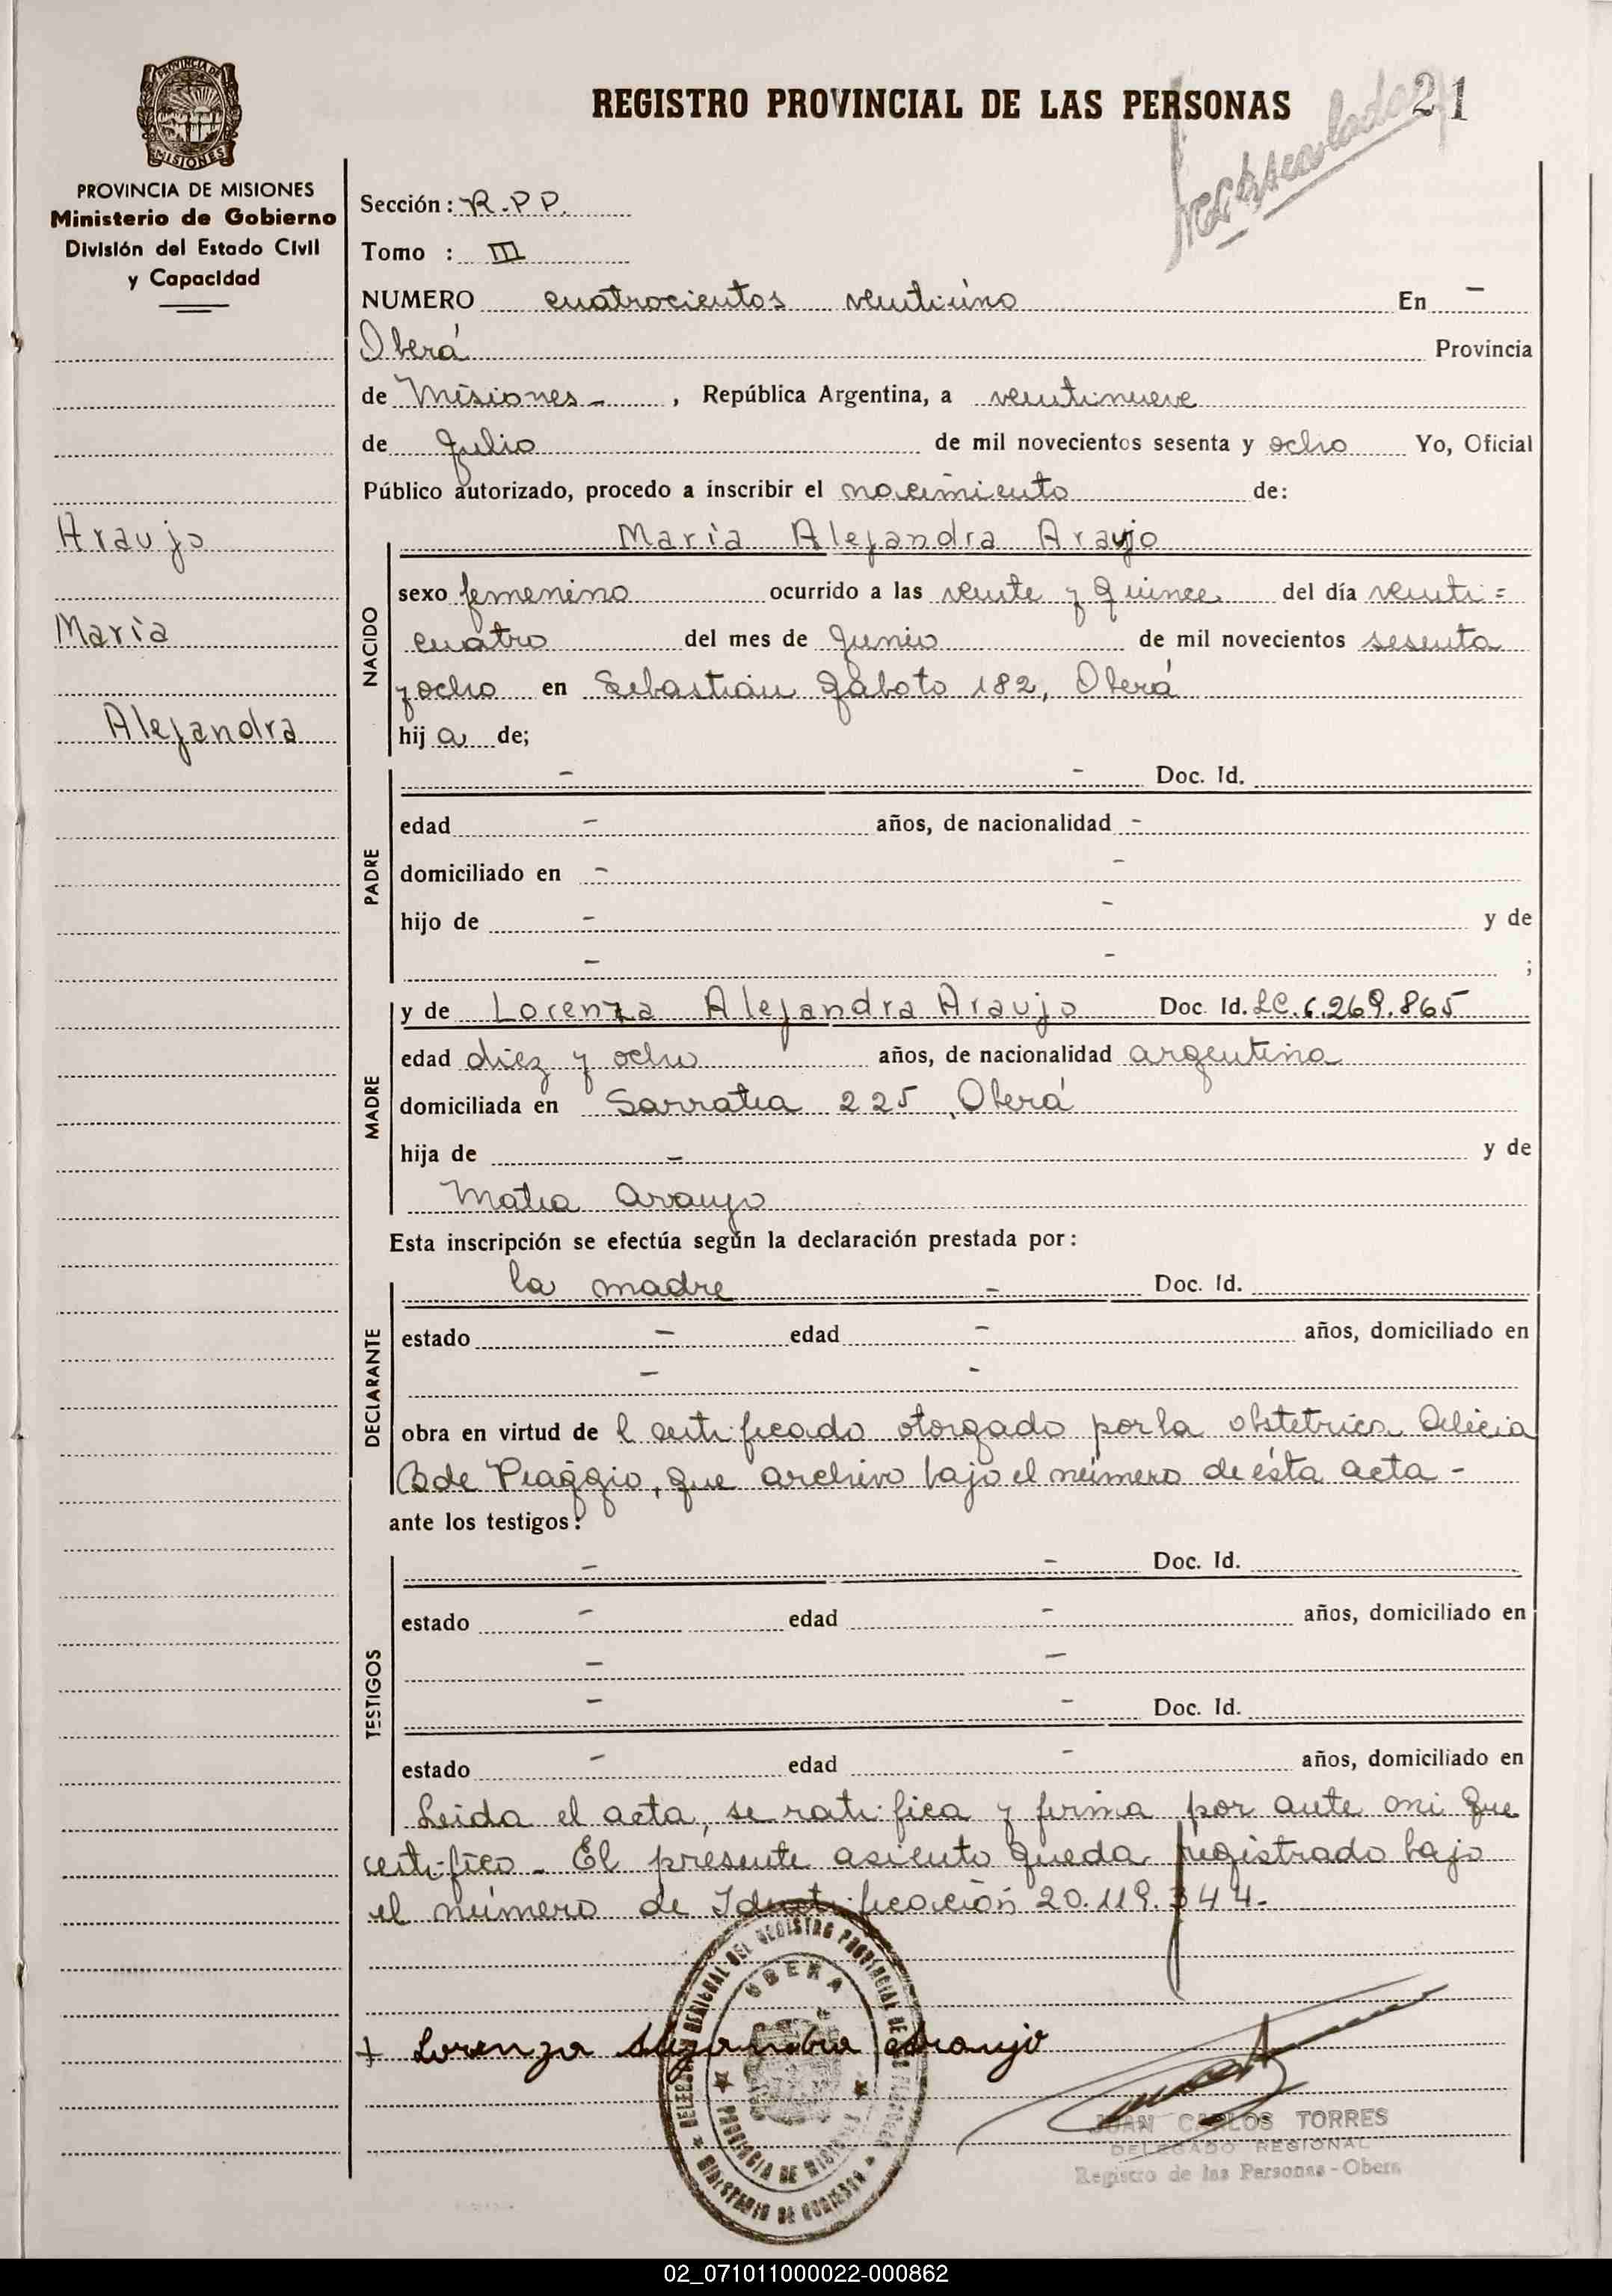 PROVINCIA DE
MISIONES
PROVINCIA DE MISIONES
Ministerio de Gobierno
División del Estado Civil
y Capacidad
REGISTRO PROVINCIAL DE LAS PERSONAS
21
Sección: R.P.P.
Tomo : III
NUMERO cuatrocientos ventiuno En -
Oberá Provincia
de Misiones - , República Argentina, a ventinueve
de Julio de mil novecientos sesenta y ocho Yo, Oficial
Público autorizado, procedo a inscribir el nacimiento de:
Araujo
María
Alejandra
NACIDO
María Alejandra Araujo
sexo femenino ocurrido a las veinte y quince del día venti=
cuatro del mes de Junio de mil novecientos sesenta
y ocho en Sebastián Gaboto 182, Oberá
hij a de;
PADRE
- - Doc. Id.
edad - años, de nacionalidad -
domiciliado en - -
hijo de - - y de
- - ;
MADRE
y de Lorenza Alejandra Araujo Doc. Id. LC. 6.269.865
edad diez y ocho años, de nacionalidad argentina
domiciliada en Sarratea 225, Oberá
hija de - y de
Matia Araujo
Esta inscripción se efectúa según la declaración prestada por:
DECLARANTE
la madre - Doc. Id.
estado - edad - años, domiciliado en
- -
obra en virtud de l certificado otorgado por la obstetrica Alicia
B de Piaggio, que archivo bajo el número de ésta acta -
ante los testigos:
TESTIGOS
- - Doc. Id.
estado - edad - años, domiciliado en
- -
- - Doc. Id.
estado - edad - años, domiciliado en
Leida el acta, se ratifica y firma por ante mi que
certifico - El presente asiento queda registrado bajo
el número de Identificación 20.119.344-
+ Lorenza Alejandra Araujo
DELEGACION REGIONAL DEL REGISTRO PROVINCIAL DE LAS PERSONAS
OBERA
PROVINCIA DE MISIONES
MINISTERIO DE GOBIERNO
JUAN CARLOS TORRES
DELEGADO REGIONAL
Registro de las Personas - Obera
02_071011000022-000862